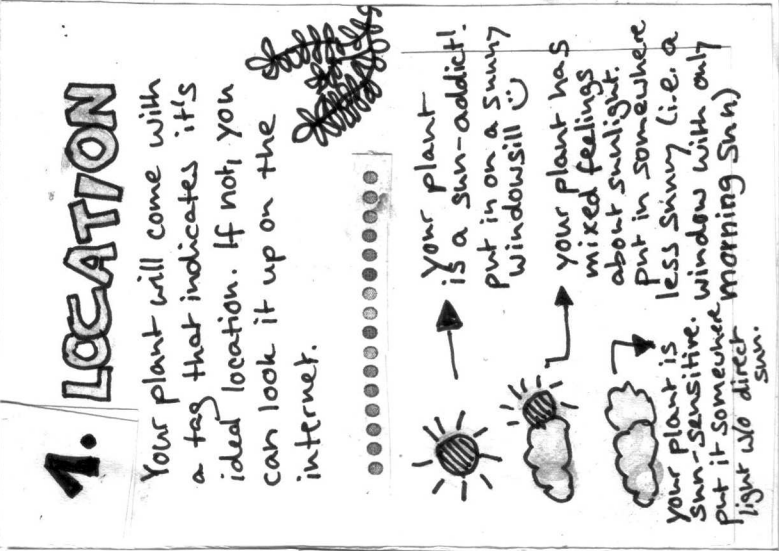 1. LOCATION
Your plant will come with
a tag that indicates it's
ideal location. If not, you
can look it up on the
internet.
your plant
is a sun-addict!
put in on a sunny
windowsill
your plant has
mixed feelings
about sunlight.
put in somewhere
less sunny (i.e. a
window with only
morning sun)
your plant is
sun-sensitive.
put it somewhere
light w/o direct
sun.